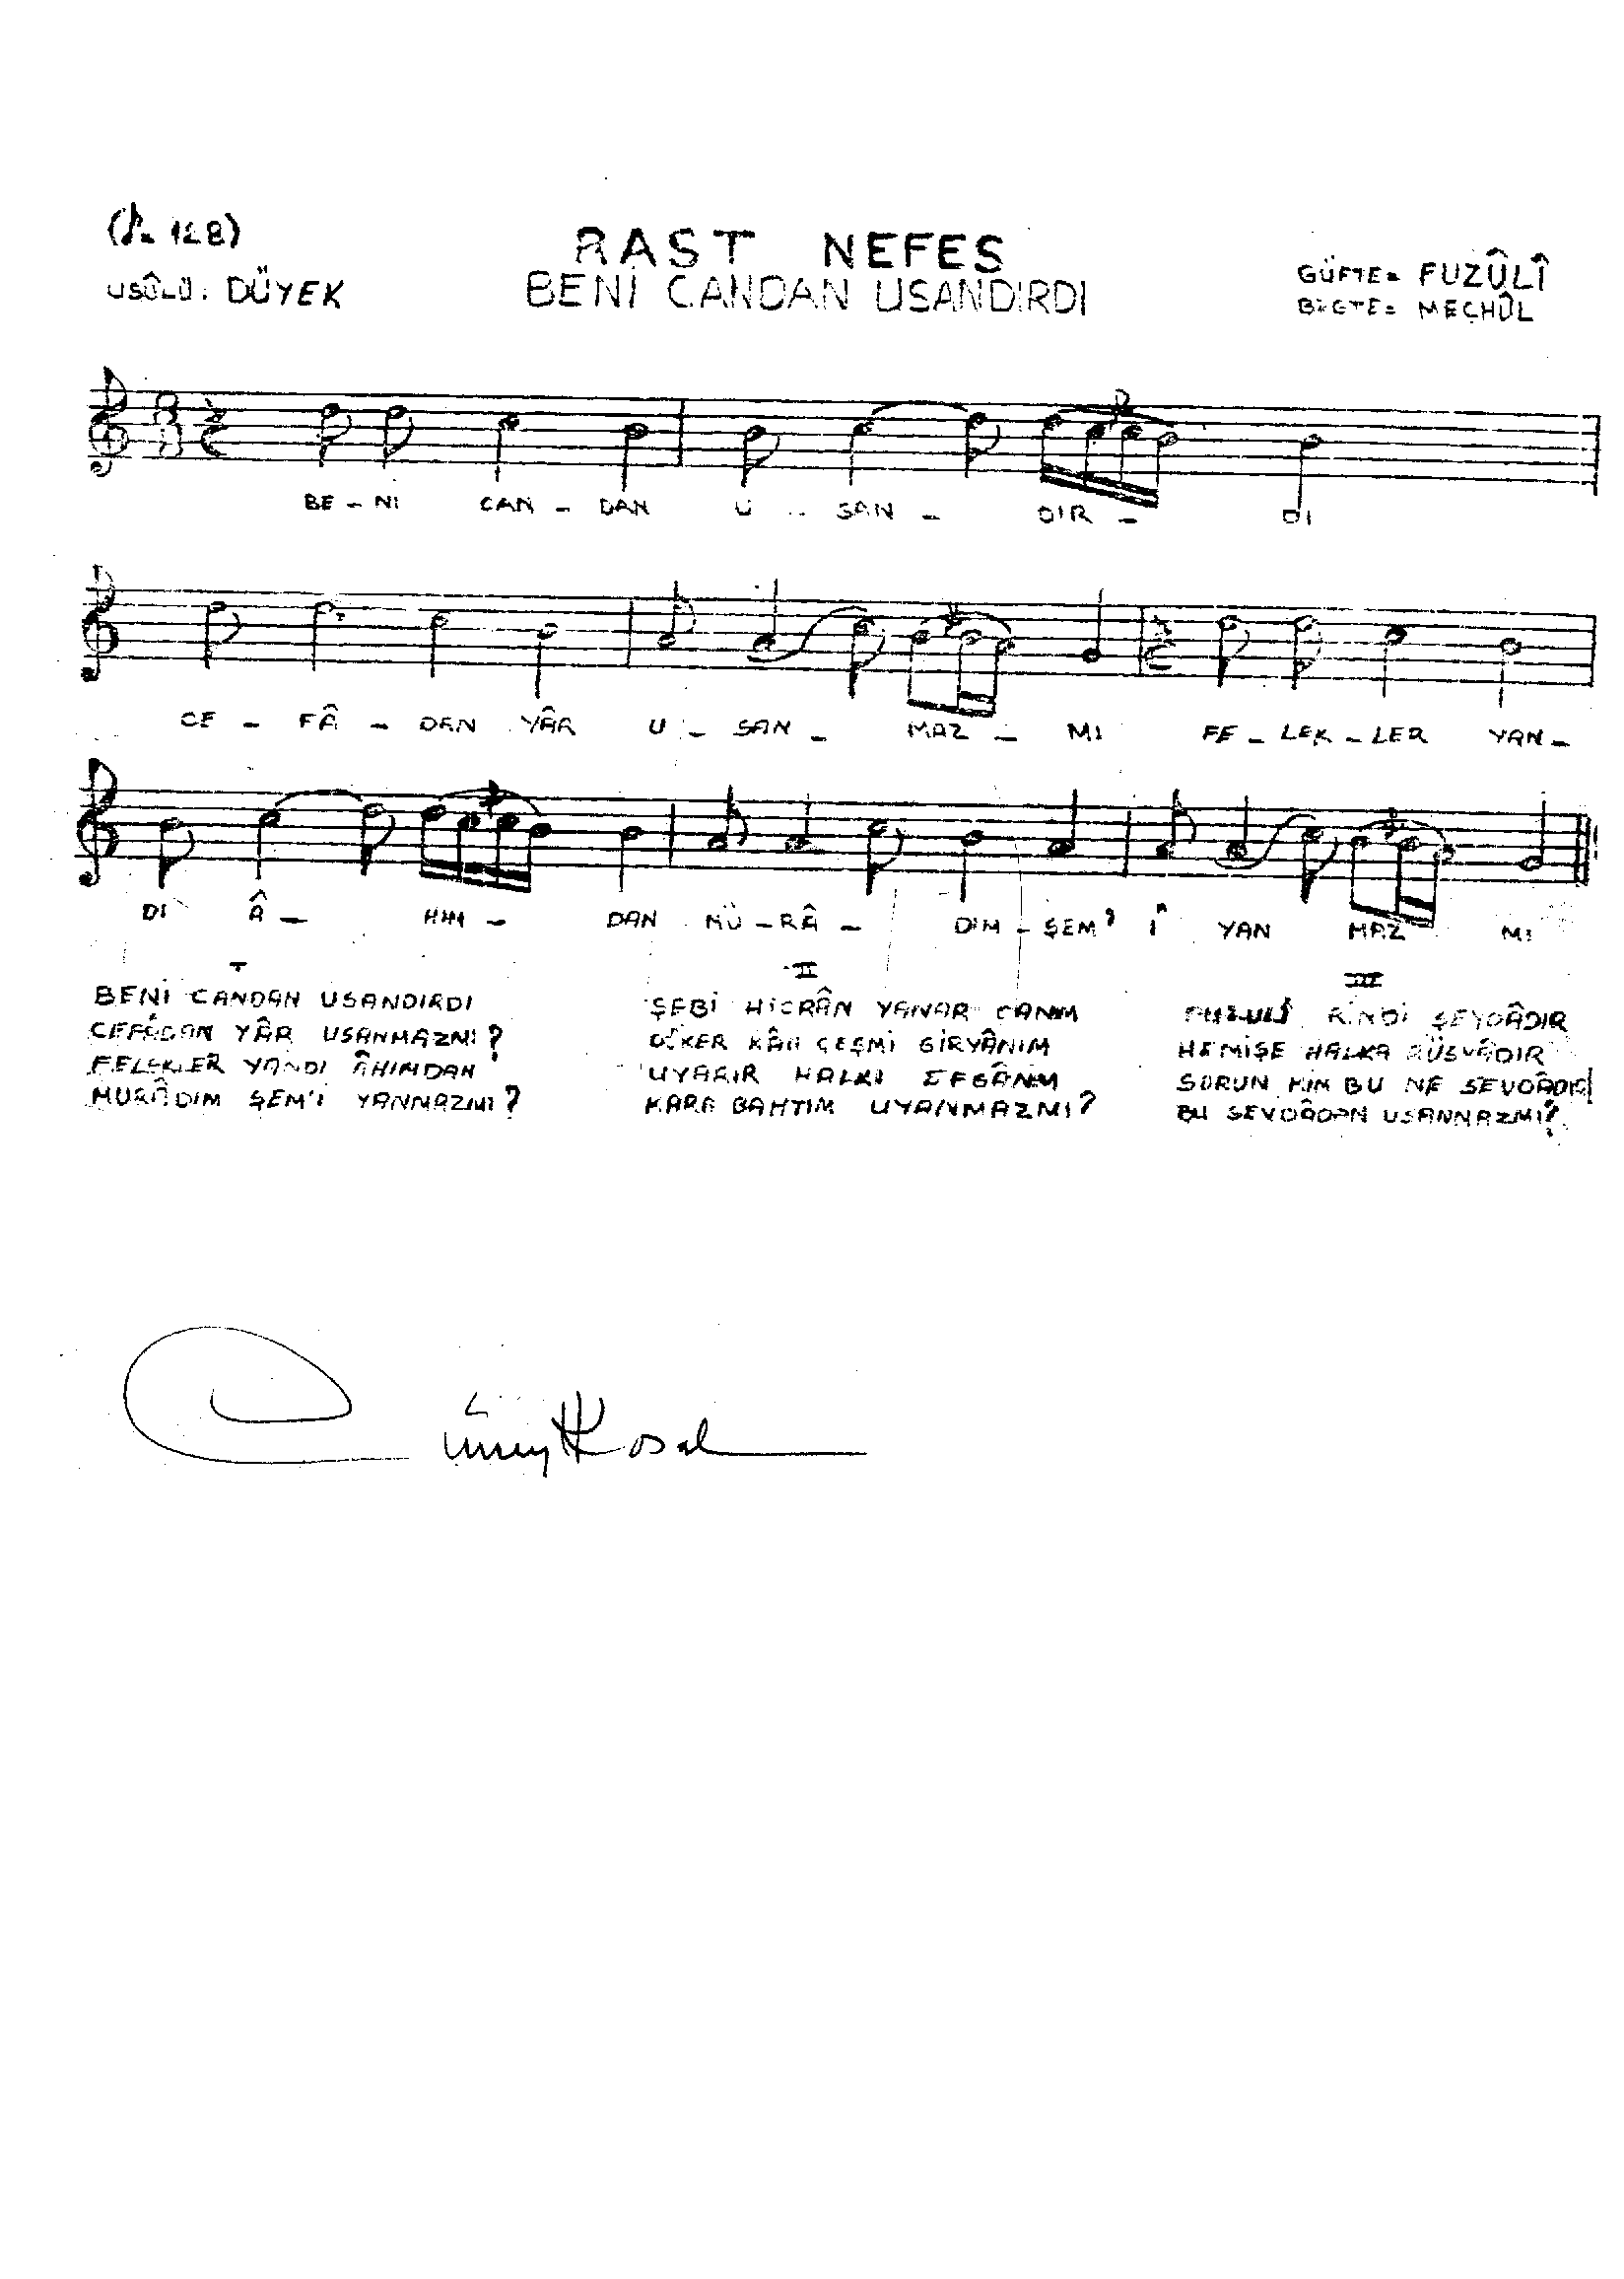 (♪= 128)
RAST NEFES
USÛLÜ: DÜYEK
BENİ CANDAN USANDIRDI
GÜFTE= FUZÛLÎ
BESTE= MEÇHÛL
BE - Nİ CAN - DAN U - SAN - DIR - DI
CE - FÂ - DAN YÂR U - SAN - MAZ - MI FE - LEK - LER YAN -
DI Â - HIM - DAN MÜ - RÂ - DIM - ŞEM' İ YAN MAZ MI
I
BENİ CANDAN USANDIRDI
CEFÂDAN YÂR USANMAZMI?
FELEKLER YANDI ÂHIMDAN
MURÂDIM ŞEM'İ YANMAZMI?
II
ŞEBİ HİCRÂN YANAR CANIM
DÖKER KÂN ÇEŞMİ GİRYÂNIM
UYARIR HALKI EFGÂNIM
KARA BAHTIM UYANMAZMI?
III
FUZULİ RİNDİ ŞEYDÂDIR
HEMİŞE HALKA RÜSVÂDIR
SORUN KİM BU NE SEVDÂDIR
BU SEVDÂDAN USANMAZMI?
Cüneyt Kosal